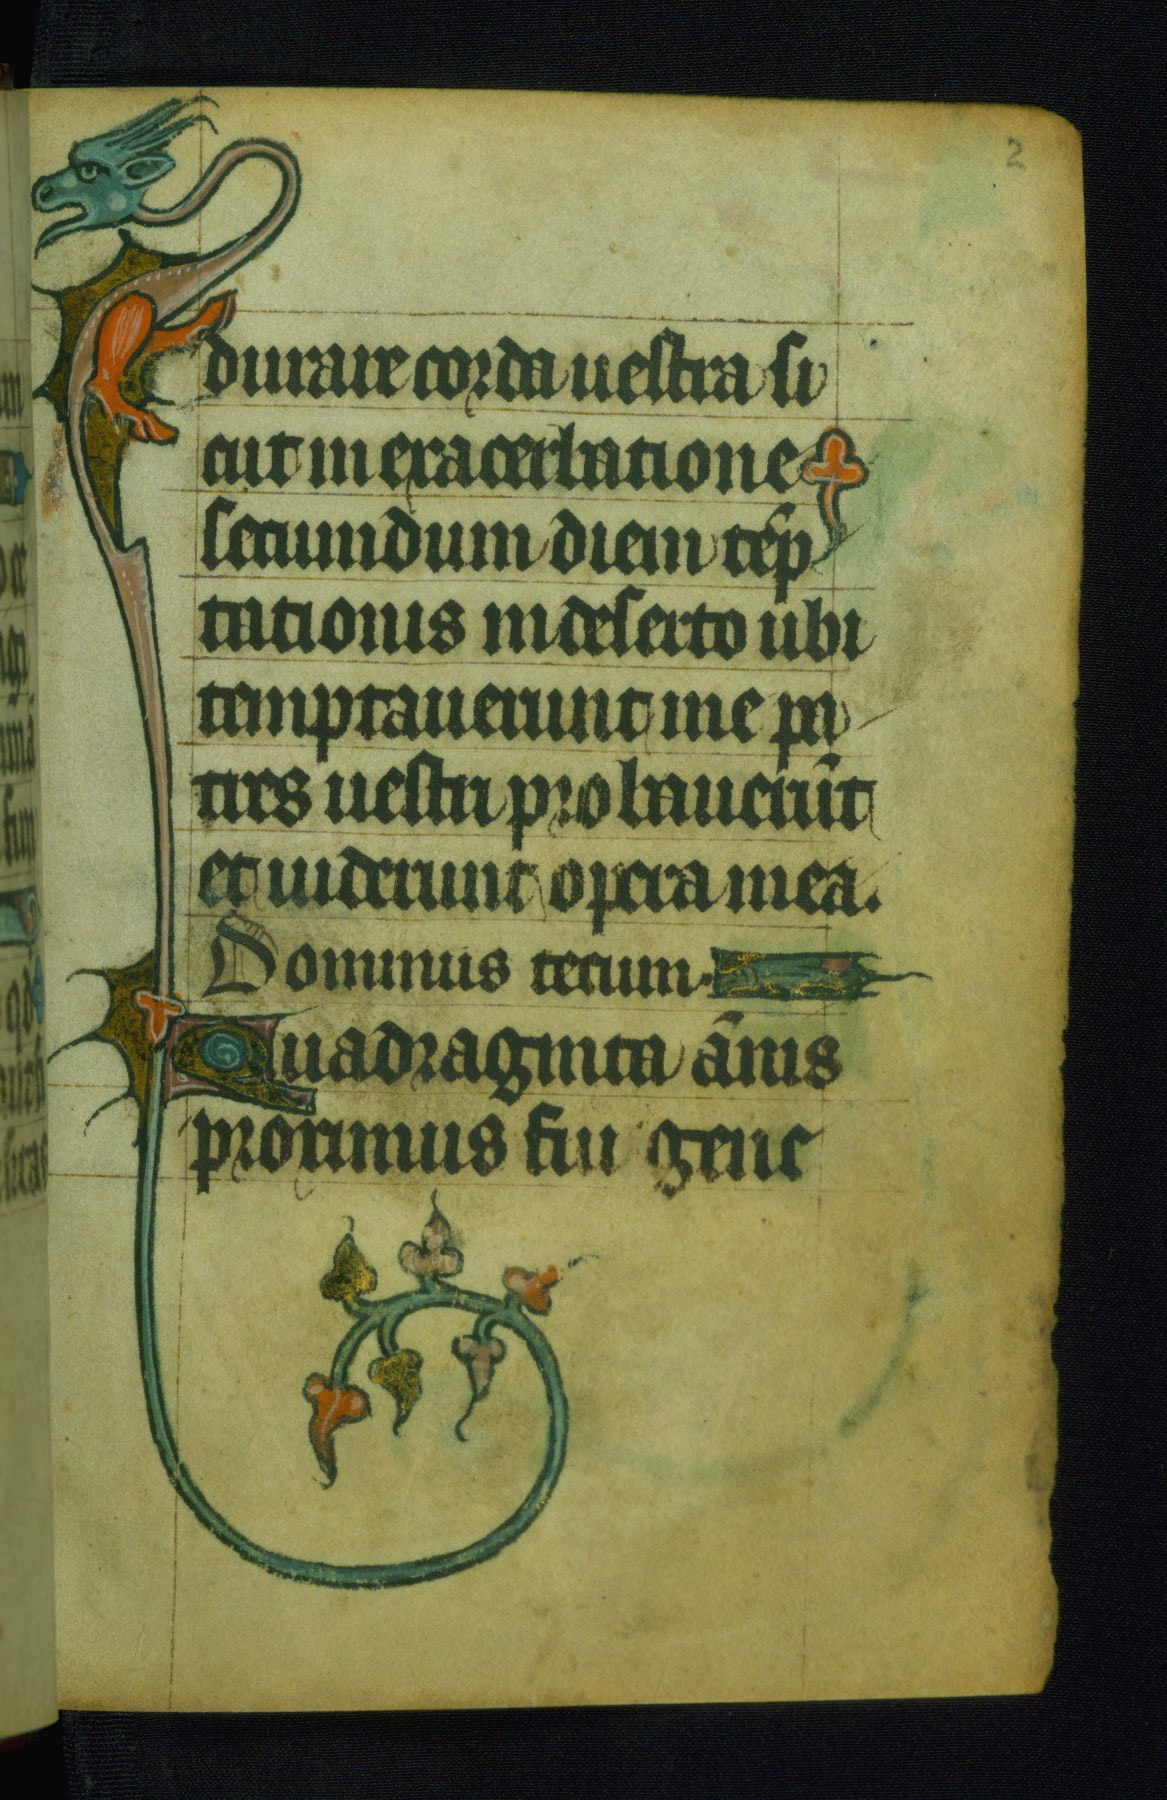 2
durare corda uestra si
cut in exacerbatione
secundum diem tẽp
tationis in deserto ubi
temptauerunt me pa
tres uestri probauerũt
et uiderunt opera mea.
Dominus tecum.
Quadraginta ãnis
proximus fui gene